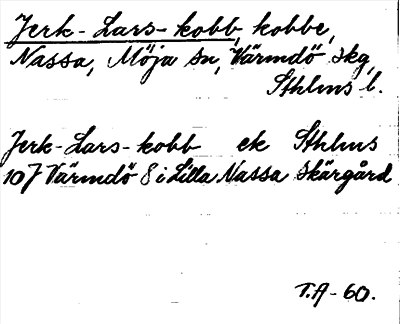 Jerk-Lars-kobb, kobbe,
Nassa, Möja sn, Värmdö skg,
Sthlms l.
Jerk-Lars-kobb ek Sthlms
10J Värmdö 8 i Lilla Nassa skärgård
T.A-60.